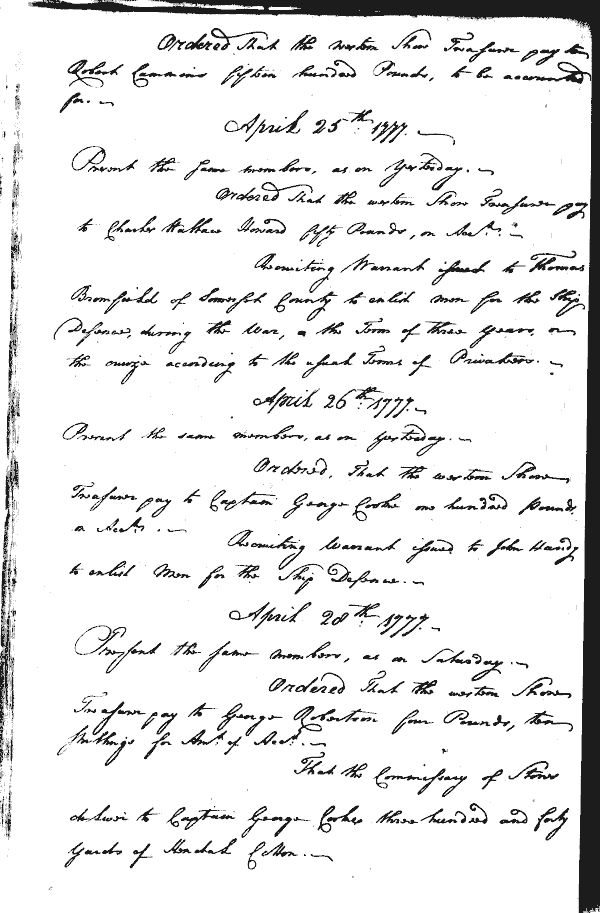 Ordered That the western Shore Treasurer pay to
Robert Cummins fifteen hundred Pounds, to be accounted
for. ~
April 25th. 1777. ~
Present the same members, as on Yesterday. ~
Ordered That the western Shore Treasurer pay
to Charles Wallace Howard fifty Pounds, on Acct. ~
Recruiting Warrant issued to Thomas
Bromfield of Somerset County to enlist men for the Ship
Defence, during the War, or the Term of three Years, or
the cruize according to the usual Terms of Privateers. ~
April 26th. 1777. ~
Present the same members, as on Yesterday. ~
Ordered, That the western Shore
Treasurer pay to Captain George Cooke one hundred Pounds,
on Acct. ~ Recruiting Warrant issued to John Handy
to enlist Men for the Ship Defence. ~
April 28th. 1777. ~
Present the same members, as on Saturday. ~
Ordered That the western Shore
Treasurer pay to George Robertson four Pounds, ten
shillings for Amt. of Acct. ~
That the Commissary of Stores
deliver to Captain George Cooke three hundred and forty
Yards of Cotton. ~